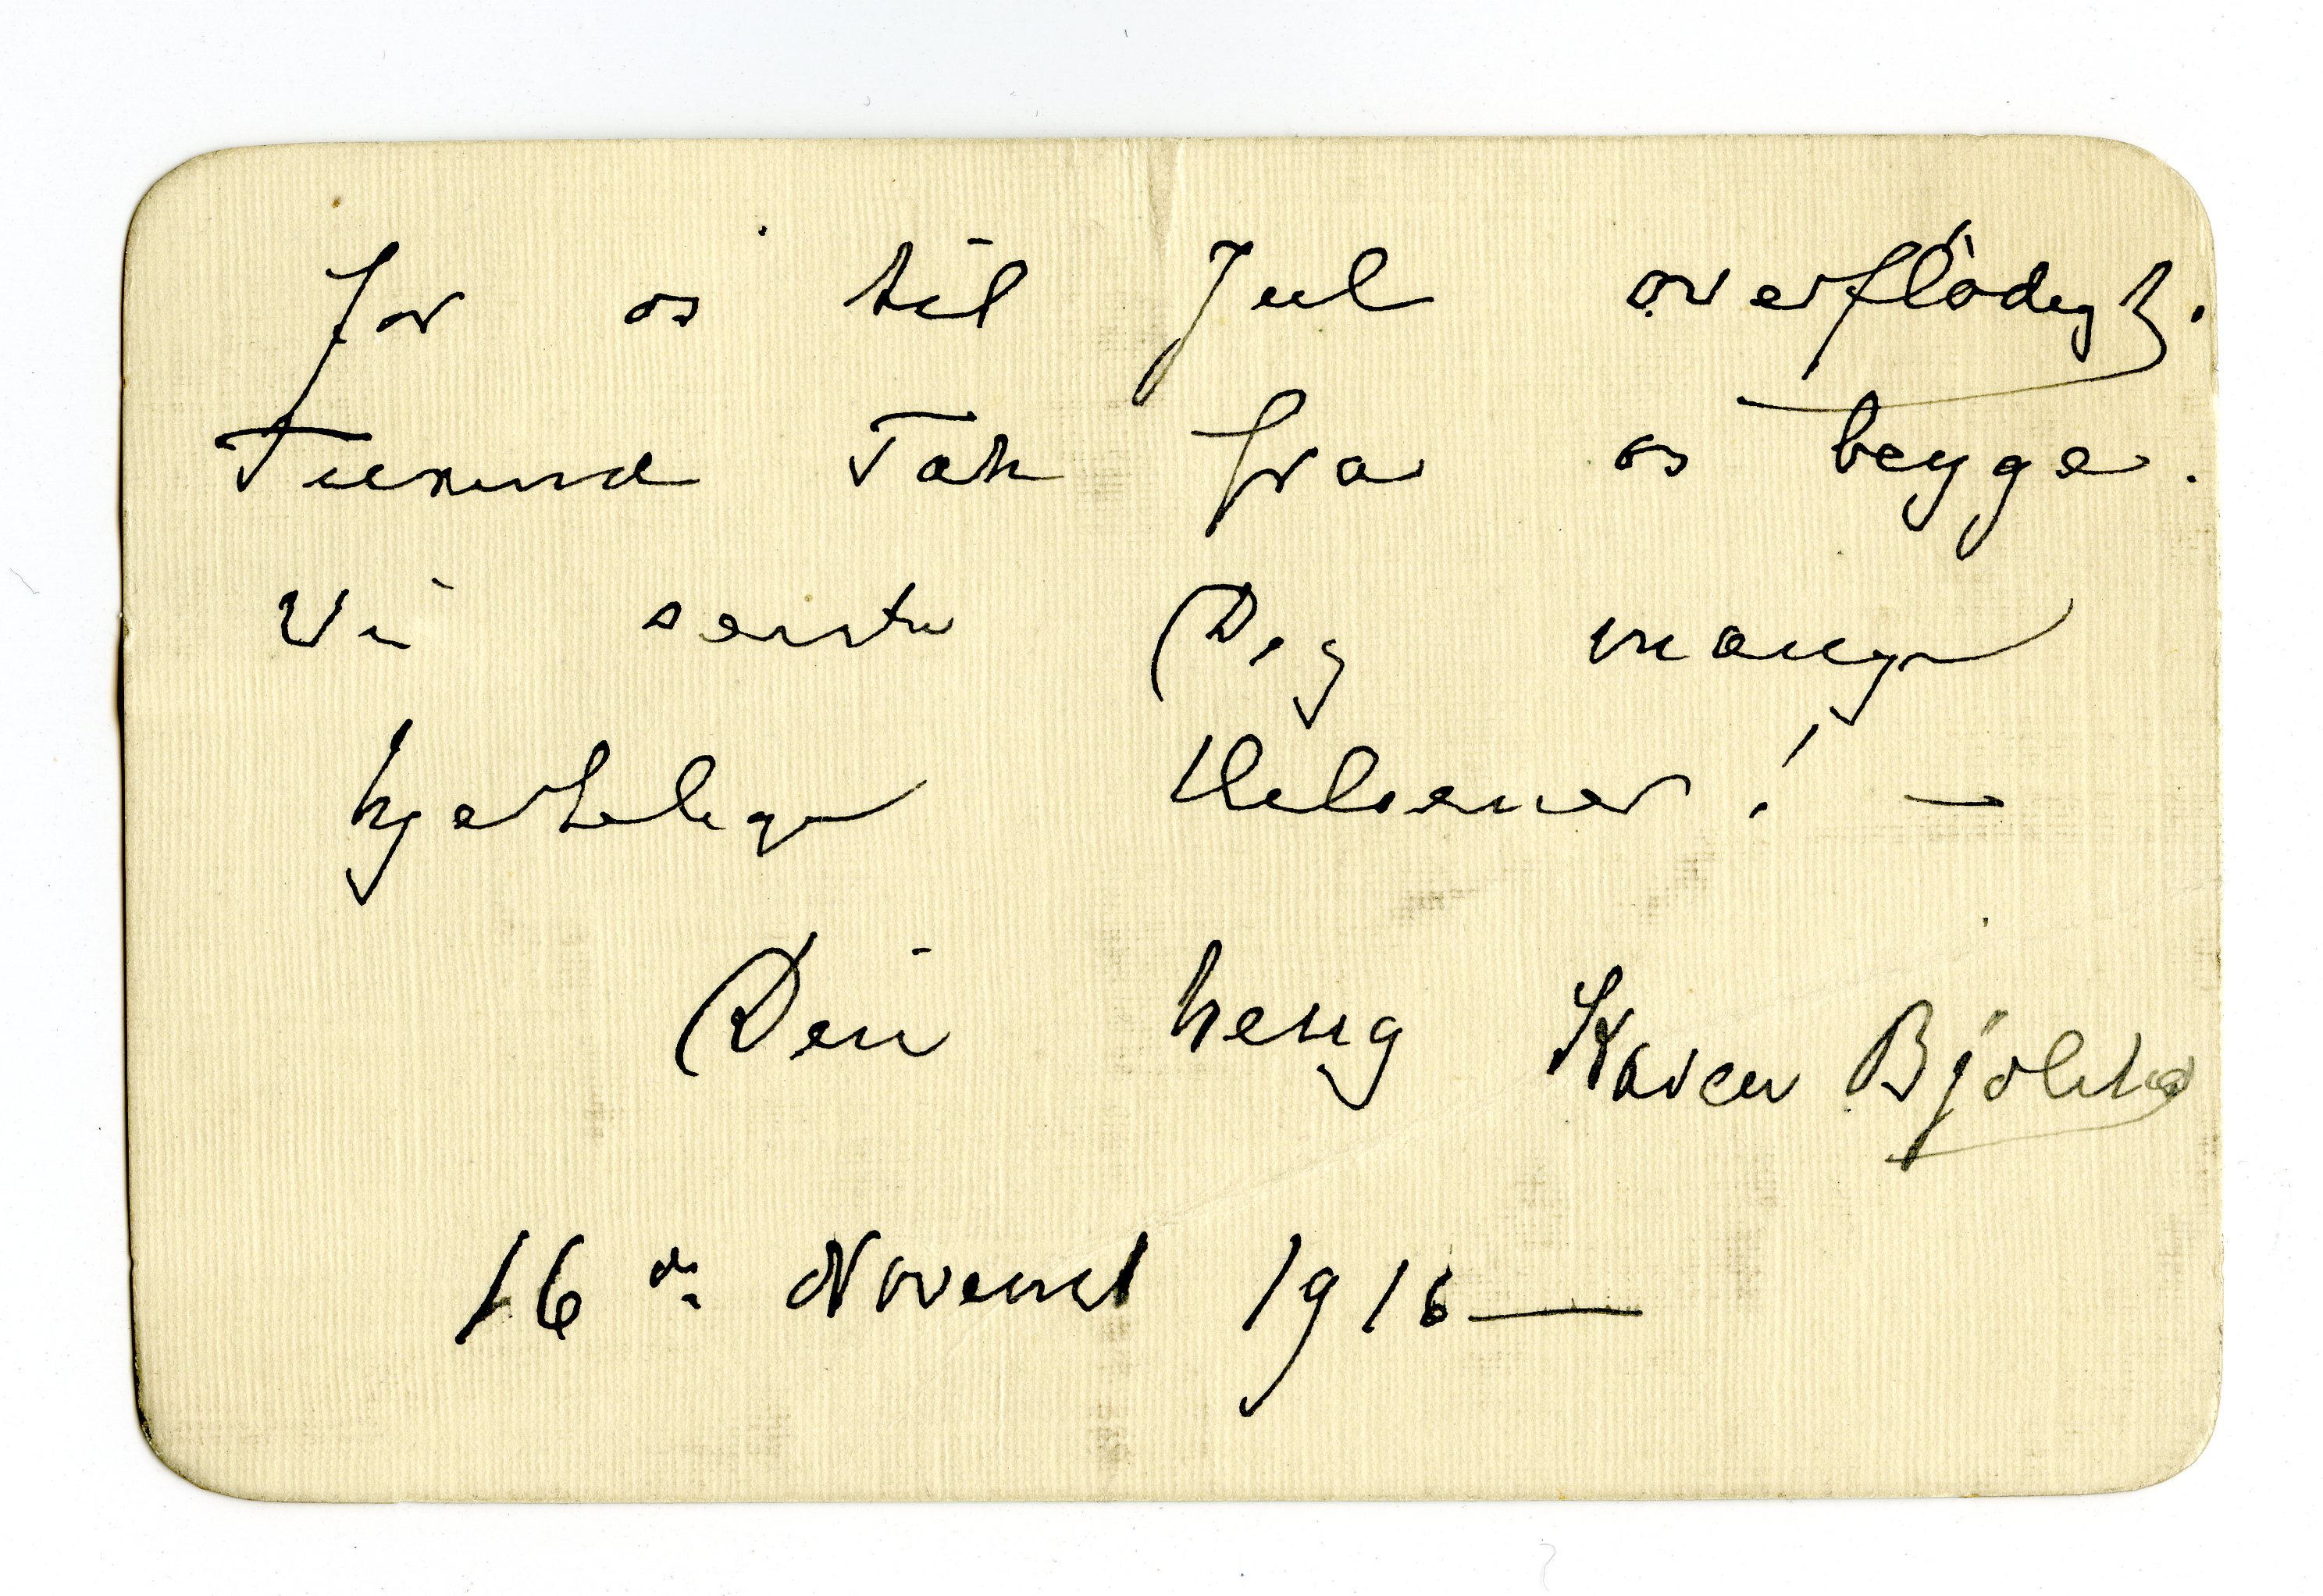 for os til Jul overflödigt.
Tusund Tak fra os begge.
Vi sender Dig mange
hjertelige Helsener! —
Din heng Karen Björlse
16de Novembr 1916 —